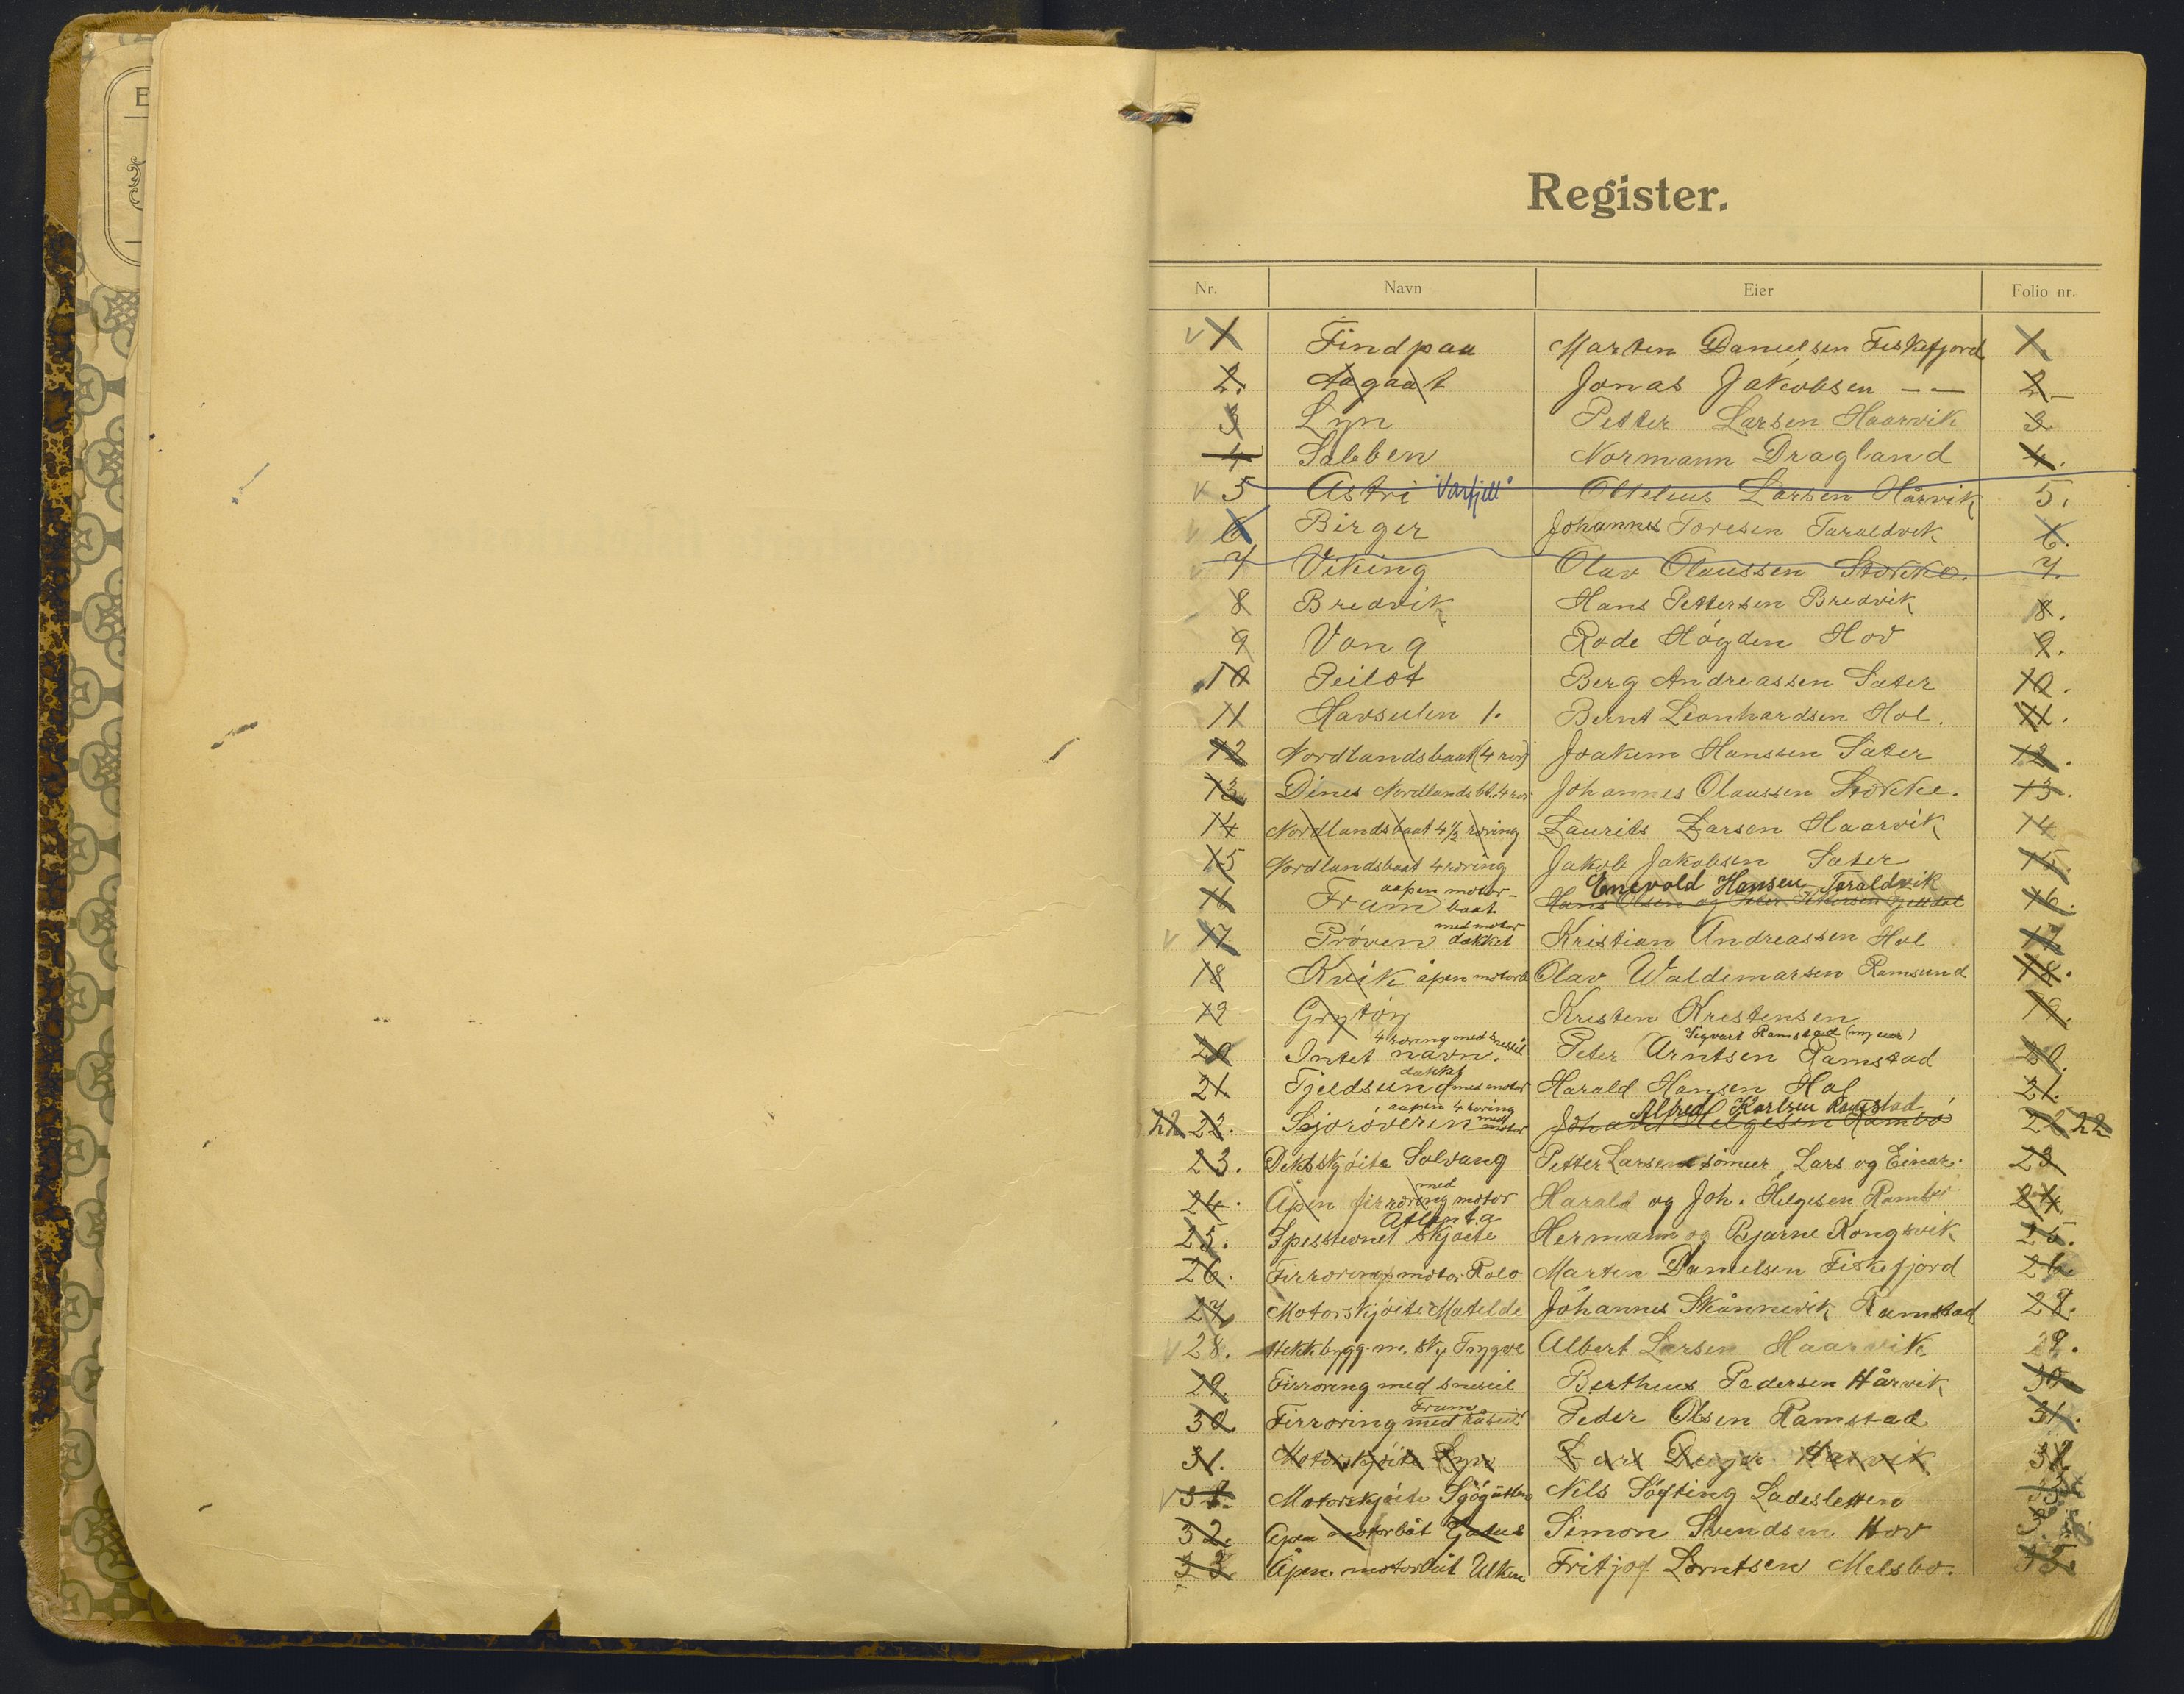 E
Register.
Nr. Navn Eier Folio nr.
V 1 Findpaa Marten Danielsen Fiskefjord 1.
2. Aagaat Jonas Jakobsen — — 2 –
3 Lyn Petter Larsen Haarvik 3.
4 Sabben Normann Dragland 4.
V 5 Astri "Varfjell" Ottelius Larsen Hårvik 5.
V 6 Birger Johannes Toresen Taraldvik 6.
V 7 Viking Olav Olaussen Stokke. 7.
8 Bredvik Hans Pettersen Bredvik 8.
9 Vong Rode Høgden Hov 9.
10 Peilot Berg Andreassen Sæter 10.
11 Havsulen 1. Bernt Leonhardsen Hol. 11.
12 Nordlandsbaat (4 ror) Joakim Hanssen Sæter 12.
13. Dines Nordlands bt. 4 ror. Johannes Olaussen Stokke. 13.
14 Nordlandsbaat 4 ½ roring Laurits Larsen Haarvik 14
15 Nordlandsbaat 4 roring Jakob Jakobsen Sæter 15.
aapen motor- Enevold Hansen Taraldvik
16 Fram baat Hans Olsen og Peter Pettersen Fjelldal 16.
med motor
V 17 Prøven dækket Kristian Andreassen Hol 17.
18 Kvik åpen motorb Olav Waldemarsen Ramsund 18.
19 Grytøy Kristen Kristensen 19.
4 roring med sneseil Sigvart Ramstad (ny eier)
20 Intet navn. Peter Arntsen Ramstad 20.
dækket
21. Fjeldsund med motor Harald Hansen Hol 21.
aapen 4 roring Alfred Karlsen Ramstad
22 22. Sjorøveren med motor Johan Helgesen Rambø 21 22
23. Dekksskjøite Solvang Petter Larsens sønner, Lars og Einar. 23
med
24. Åpen firroring motor Harald og Joh. Helgesen Rambø 24.
Atlanta
25. Spisstevnet skjøite Hermann og Bjarne Kongsvik 25.
26. Firroring motor Rolo Marten Danielsen Fiskefjord 26.
27. Motorskjøite Matilde Johannes Skånnevik Ramstad 28.
V 28. Hekkbygg. m. skj Trygve Albert Larsen Haarvik 29.
29. Firroring med sneseil Berthius Pedersen Hårvik 30.
Fram
30. Firroring med råseil Peder Olsen Ramstad 31.
31. Motorskjøite Lyn Lars Hårvik 32.
V 31. Motorskjøite Nils Søfting Ladesletten 33
32. Åpen motorbåt Simon Svendsen Hov
33. Åpen motorbåt Ulken Fritjof Lorntsen Melsbo. 35.